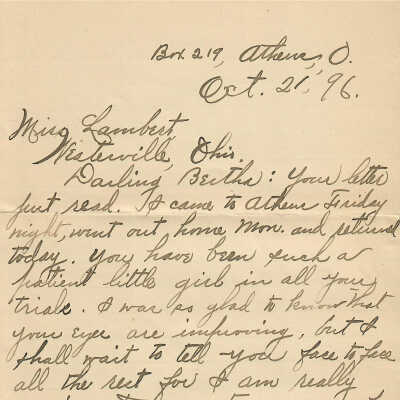 Box 219, Athens, O.
Oct. 21, '96.
Miss Lambert,
Westerville, Ohio.
Darling Bertha: Your letter
just read. I came to Athens Friday
night, went out home Mon. and returned
today. You have been such a
patient little girl in all your
trials. I was so glad to know that
your eyes are improving, but I
shall wait to tell you face to face
all the rest for I am really